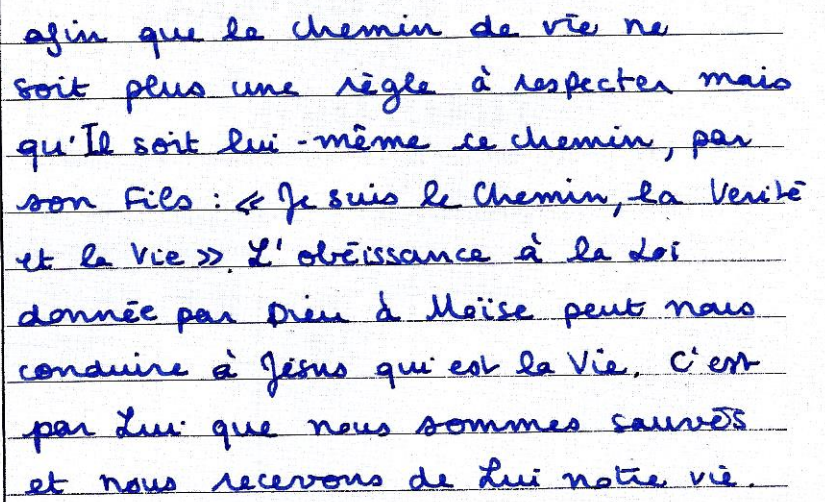 afin que le chemin de vie ne
soit plus une règle à respecter mais
qu'Il soit lui-même ce chemin, par
son Fils : « Je suis le Chemin, la Verité
et la Vie ». L'obéissance à la Loi
donnée par Dieu à Moïse peut nous
conduire à Jésus qui est la Vie. C'est
par Lui que nous sommes sauvés
et nous recevons de Lui notre vie.